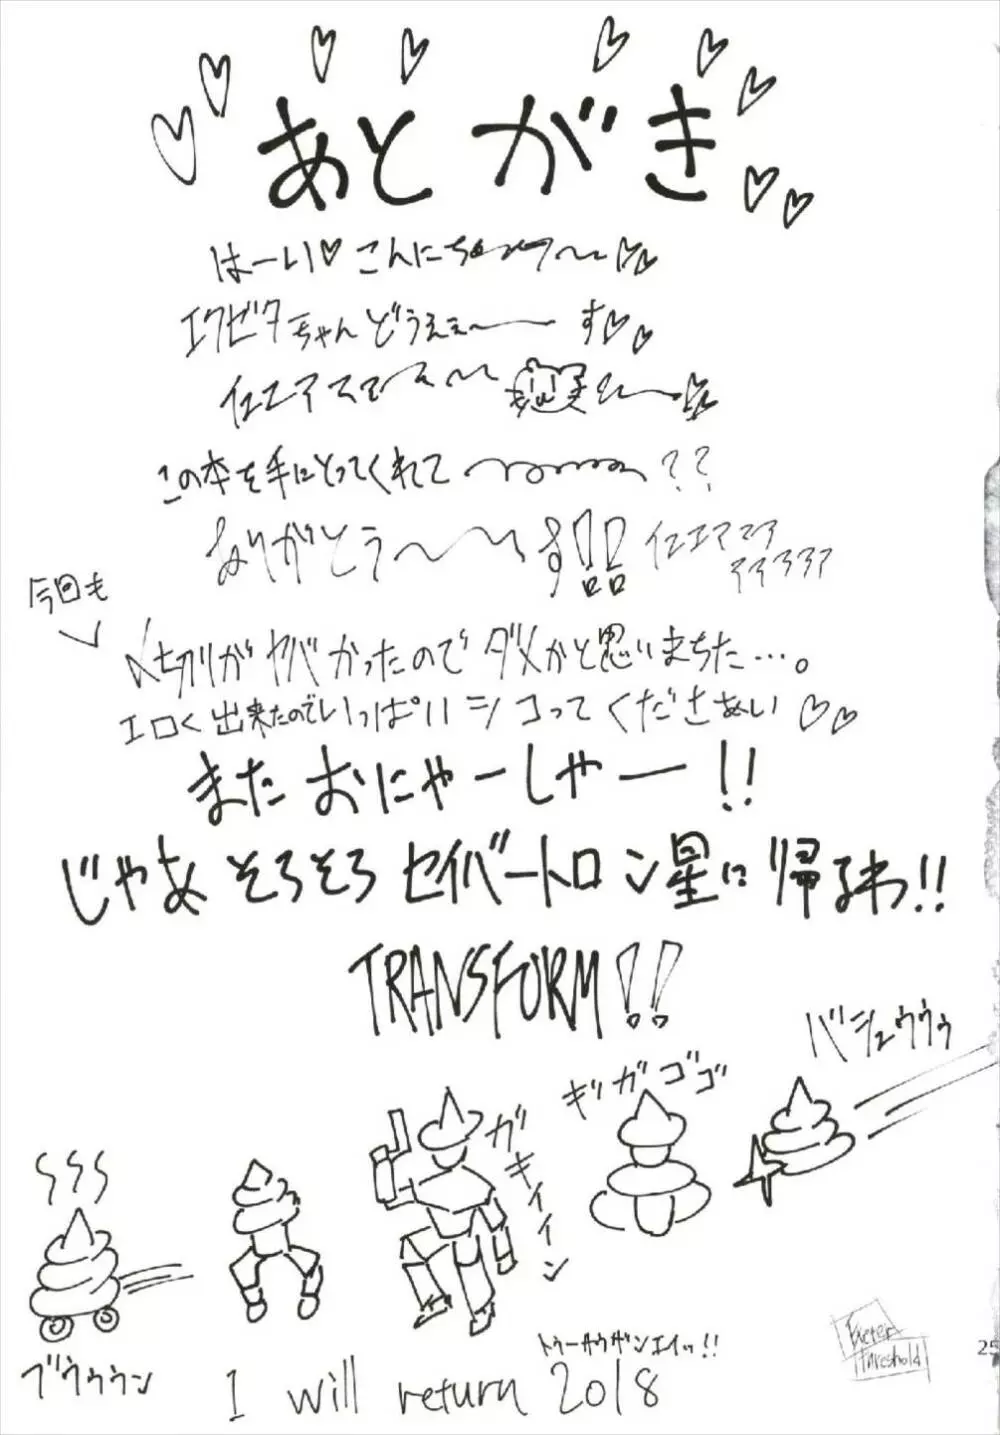 あとがき
はーい♡こんにちゎーーー♡♡
エクゼタちゃんどうぇぇ〜ーーす♡♡
イエエア
この本を手にとってくれて〜??
ありがとう〜〜す!! イエエア
今回も
〆切りがヤバかったのでダメかと思いまちた…。
エロく出来たのでいっぱいシコってくださぁい♡♡
またおにゃーしゃー!!
じゃあそろそろセイバートロン星に帰るわ!!
TRANSFORM!!
バシュゥゥゥ
ギガゴゴ
ガキイイイン
ブウゥゥン
トゥーサウザンエイッ!!
I will return 2018
Exeter Threshold
25